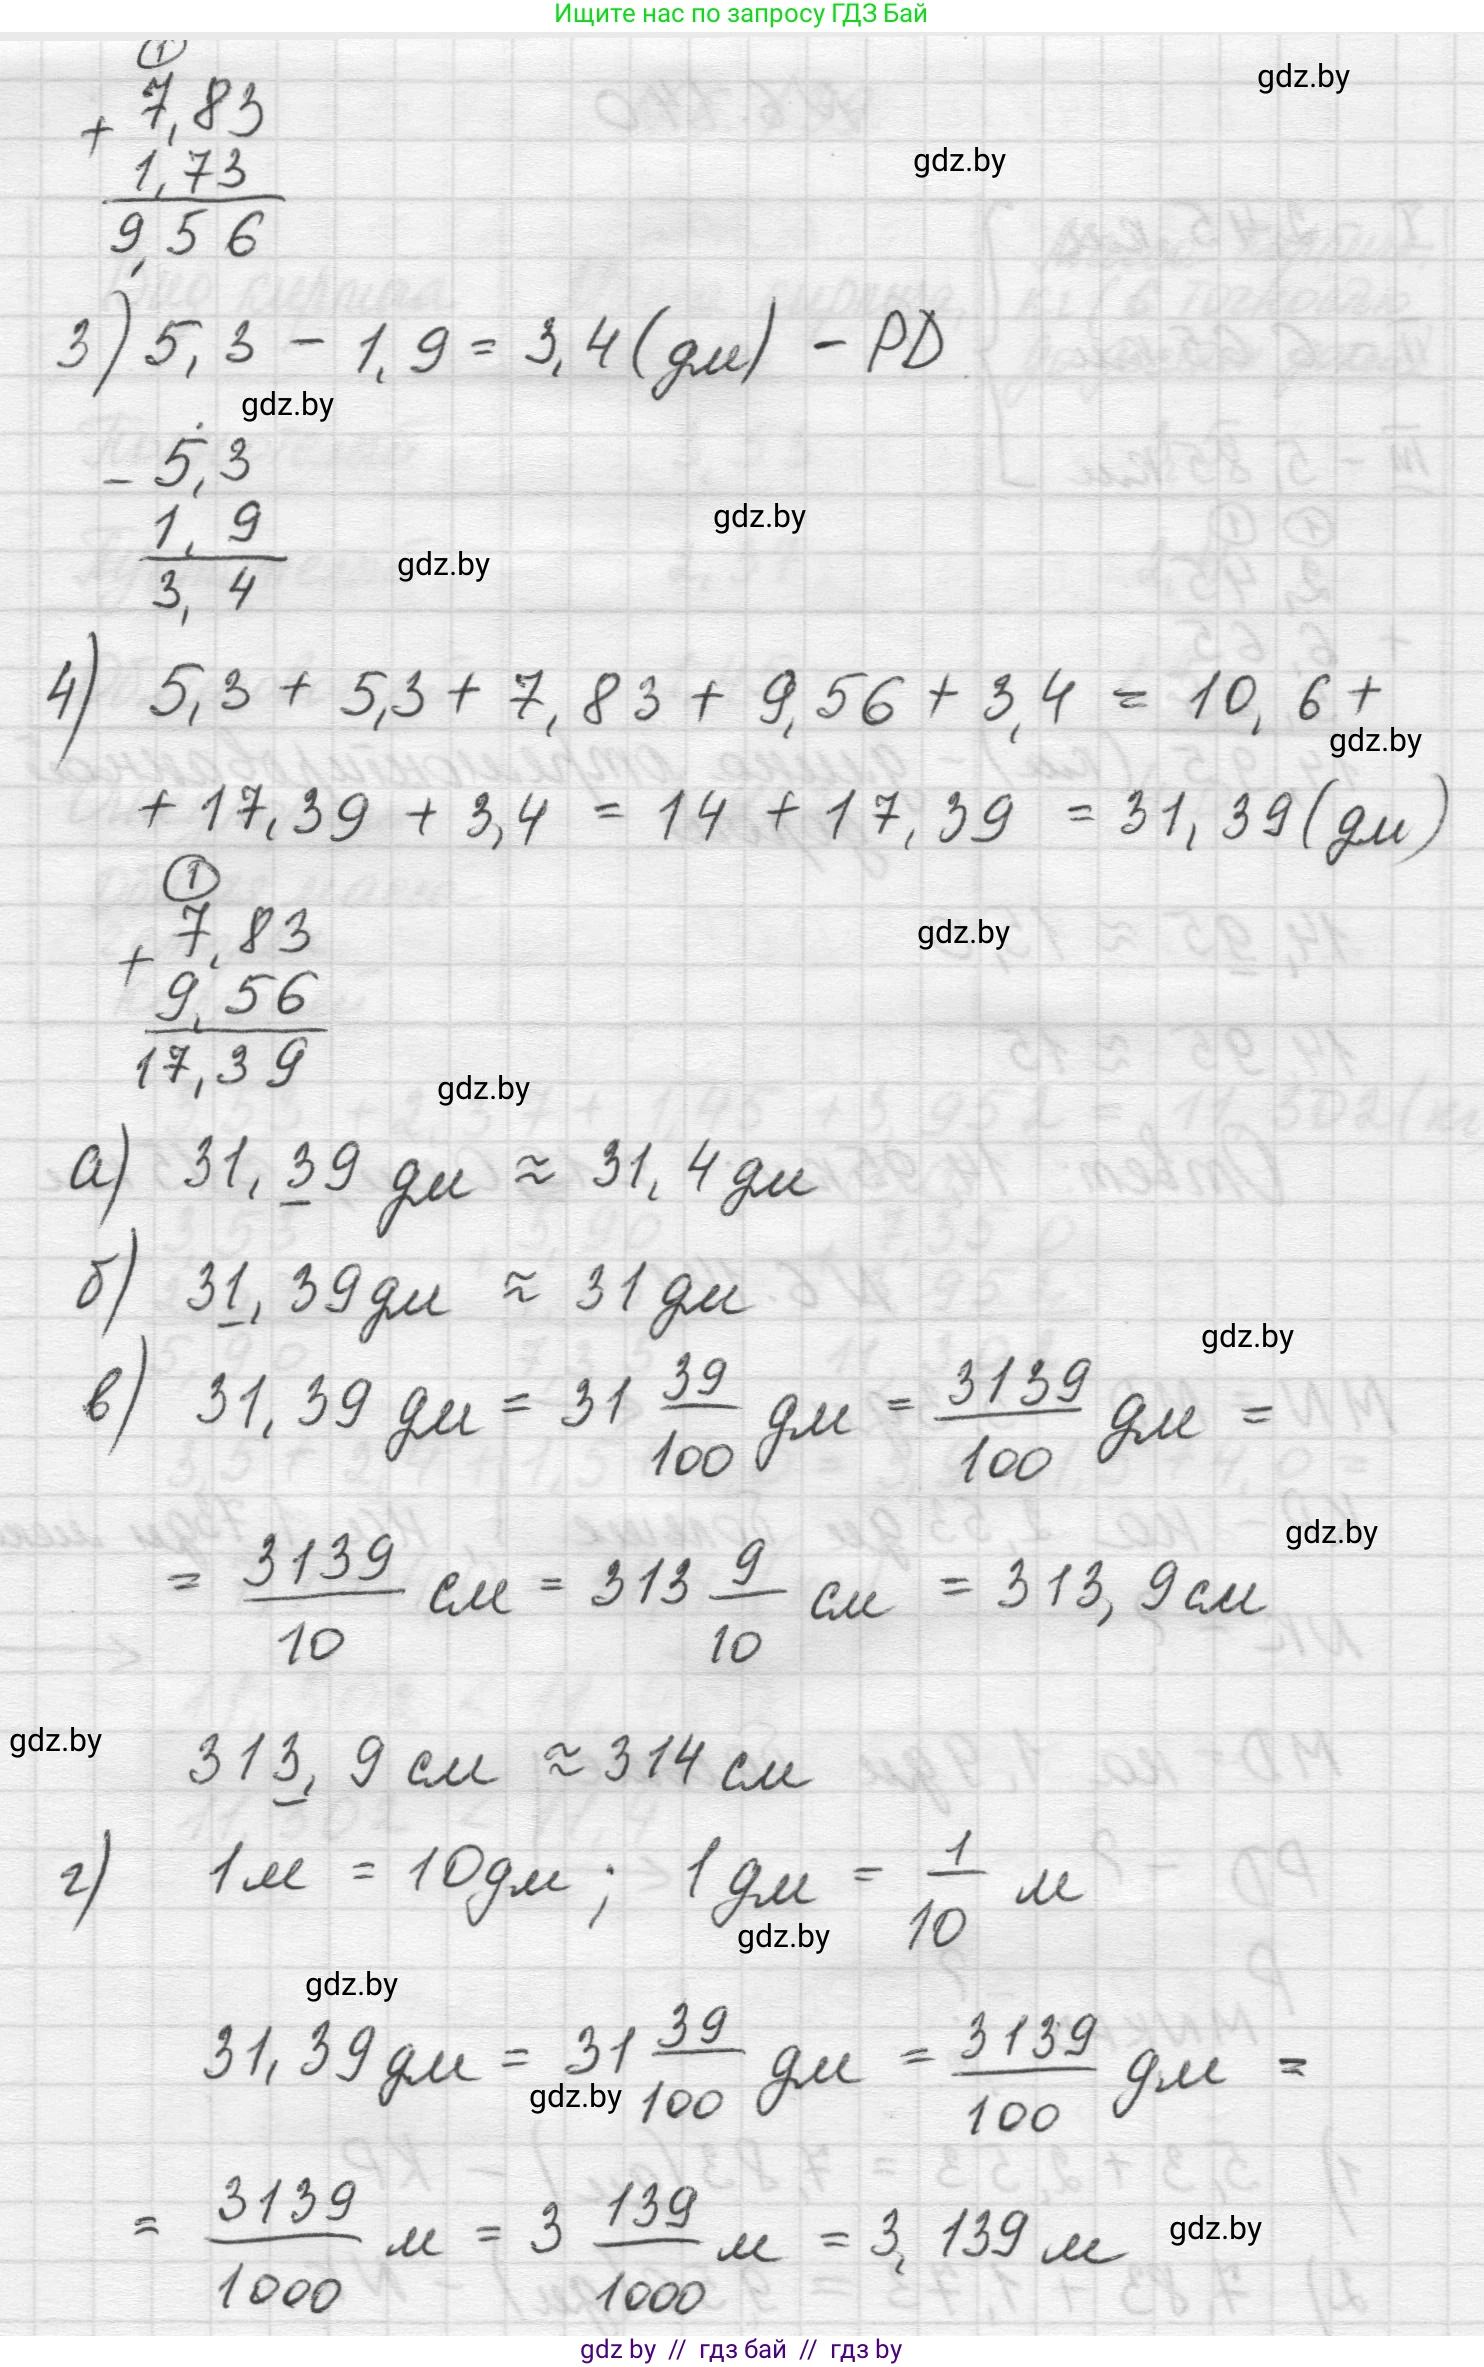 Ищите нас по запросу ГДЗ Бай
①
gdz.by
+ 7,83
gdz.by
1,73
9,56
3) 5,3 - 1,9 = 3,4 (дм) - PD
gdz.by
- 5,3
gdz.by
1,9
gdz.by
3,4
4) 5,3 + 5,3 + 7,83 + 9,56 + 3,4 = 10,6 +
gdz.by
+ 17,39 + 3,4 = 14 + 17,39 = 31,39 (дм)
①
+ 7,83
gdz.by
9,56
17,39
gdz.by
а) 31,39 дм ≈ 31,4 дм
б) 31,39 дм ≈ 31 дм
gdz.by
в) 31,39 дм = 31 39/100 дм = 3139/100 дм =
gdz.by
= 3139/10 см = 313 9/10 см = 313,9 см
gdz.by
313,9 см ≈ 314 см
г) 1 м = 10 дм; 1 дм = 1/10 м
gdz.by
gdz.by
31,39 дм = 31 39/100 дм = 3139/100 дм =
gdz.by
= 3139/1000 м = 3 139/1000 м = 3,139 м
gdz.by
gdz by // гдз бай // гдз by